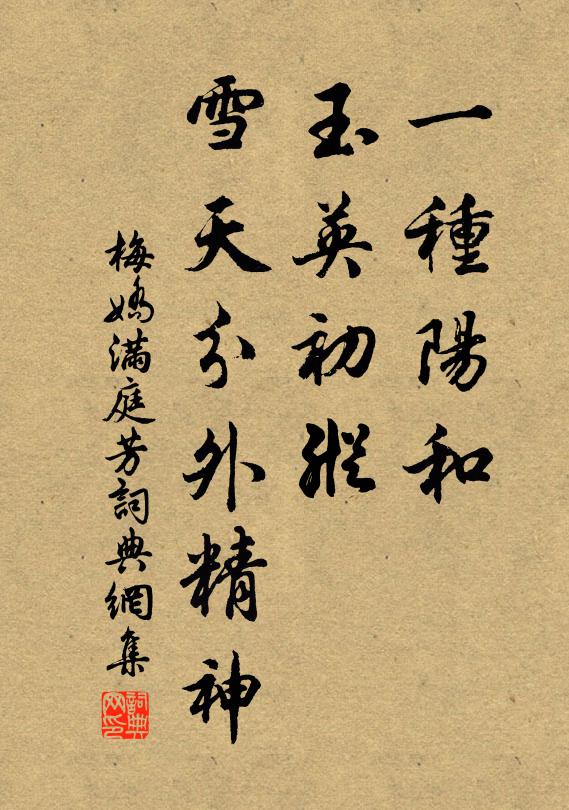 一種陽和
玉英初縱
雪天分外精神
梅嬌滿庭芳詞典網集
詞典网印